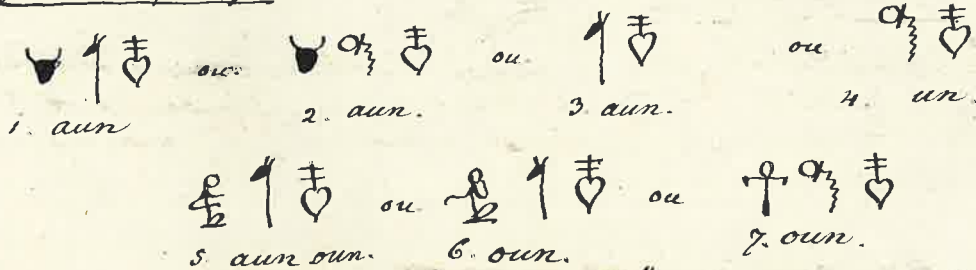 ou ou ou
1. aun 2. aun. 3. aun. 4. un.
ou ou
5 aun oun. 6. oun. 7. oun.